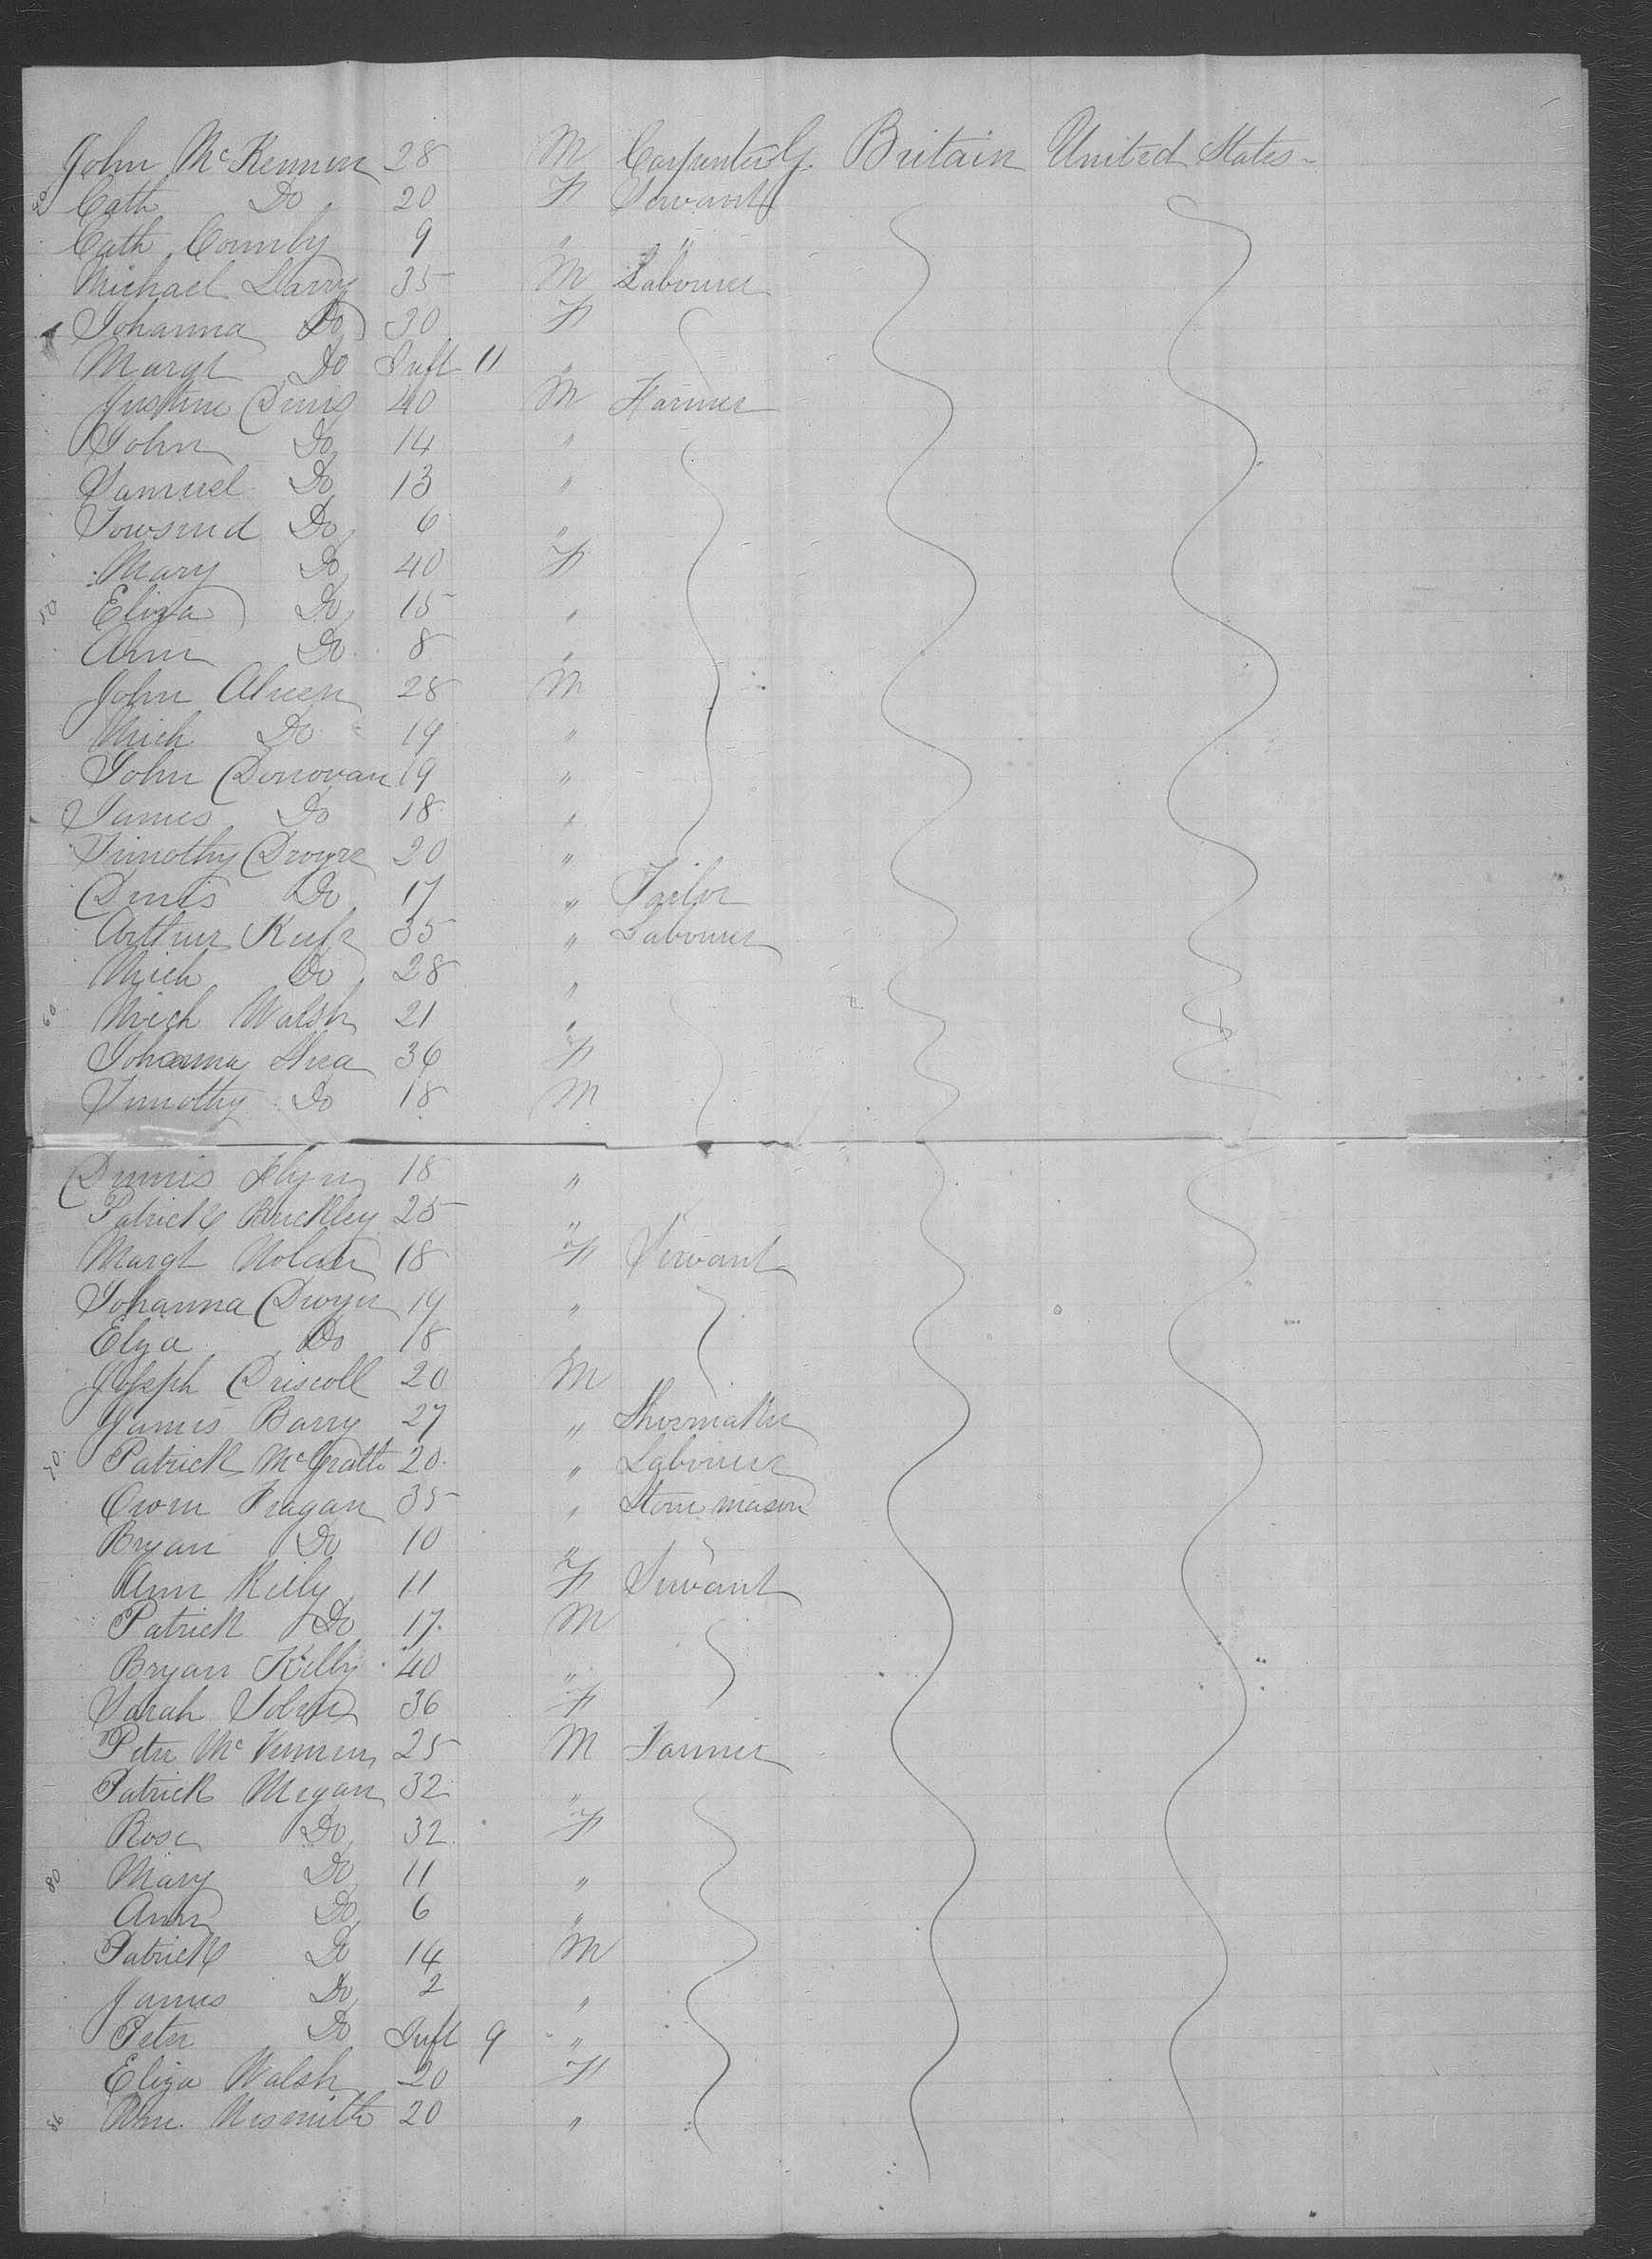 John McKennen 28 M Carpenter G. Britain United States
Cath Do 20 F Servant
Cath 9 " "
Michael Darry 35 M Labourer
Johanna Do 30 F
Margt Do Inft 11 "
Justine Dinis 40 M Farmer
John Do 14 "
Samuel Do 13 "
Towsend Do 6 "
Mary Do 40 F
50 Eliza Do 15 "
Ann Do 8 "
John Ahern 28 M
Mich Do 19 "
John Donovan 19 "
James Do 18 "
Timothy Dwyre 20 "
Dinis Do 17 " Tailor
Arthur 35 " Labourer
Mich Do 28 "
60 Mich Walsh 21 "
Johanna Shea 36 F
Timothy Do 18 M
Dennis Flyn 18 "
Patrick Buckley 25 "
Margt Nolan 18 F Servant
Johanna Dwyer 19 "
Elza Do 18 "
Joseph Driscoll 20 M
James Barry 27 " Shoemaker
70 Patrick McGrath 20 " Labourer
Owen Fragan 35 " Stone mason
Bryan Do 10 "
Ann Rielly 11 F Servant
Patrick Do 17 M
Bryan Kelly 40 "
Sarah 36 F
Peter Mc 25 M Farmer
Patrick Megan 32 "
Rose Do 32 F
80 Mary Do 11 "
Ann Do 6 "
Patrick Do 14 M
James Do 2 "
Peter Do Inft 9 "
Eliza Walsh 20 F
86 Wm. Nesmith 20 "